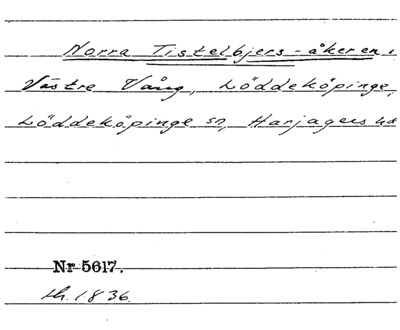 Norra Tistelbjers-åkeren i
Västre Vång, Löddeköpinge,
Löddeköpinge sn, Harjagers hd
Nr 5617.
lh. 1836.